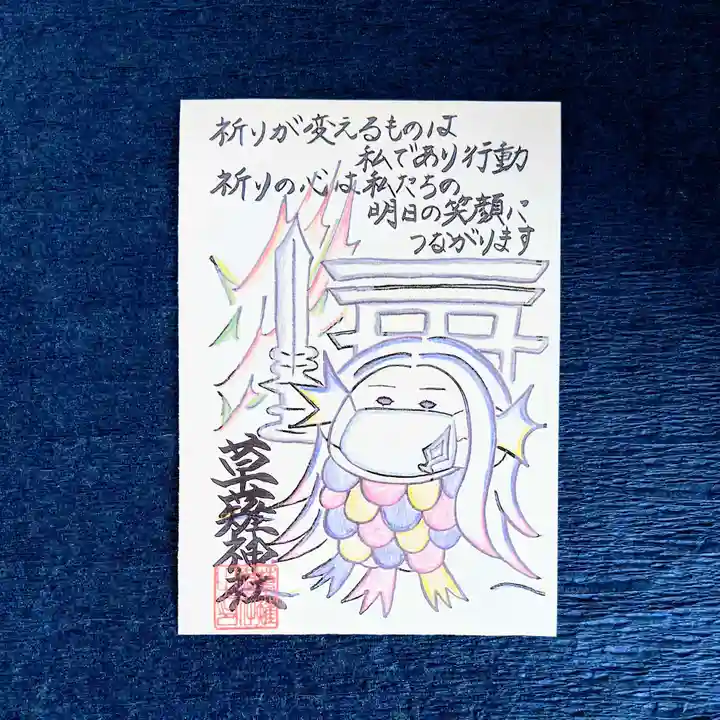 祈りが変えるものは
私であり行動
祈りの心は私たちの
明日の笑顔に
つながります
草薙神社